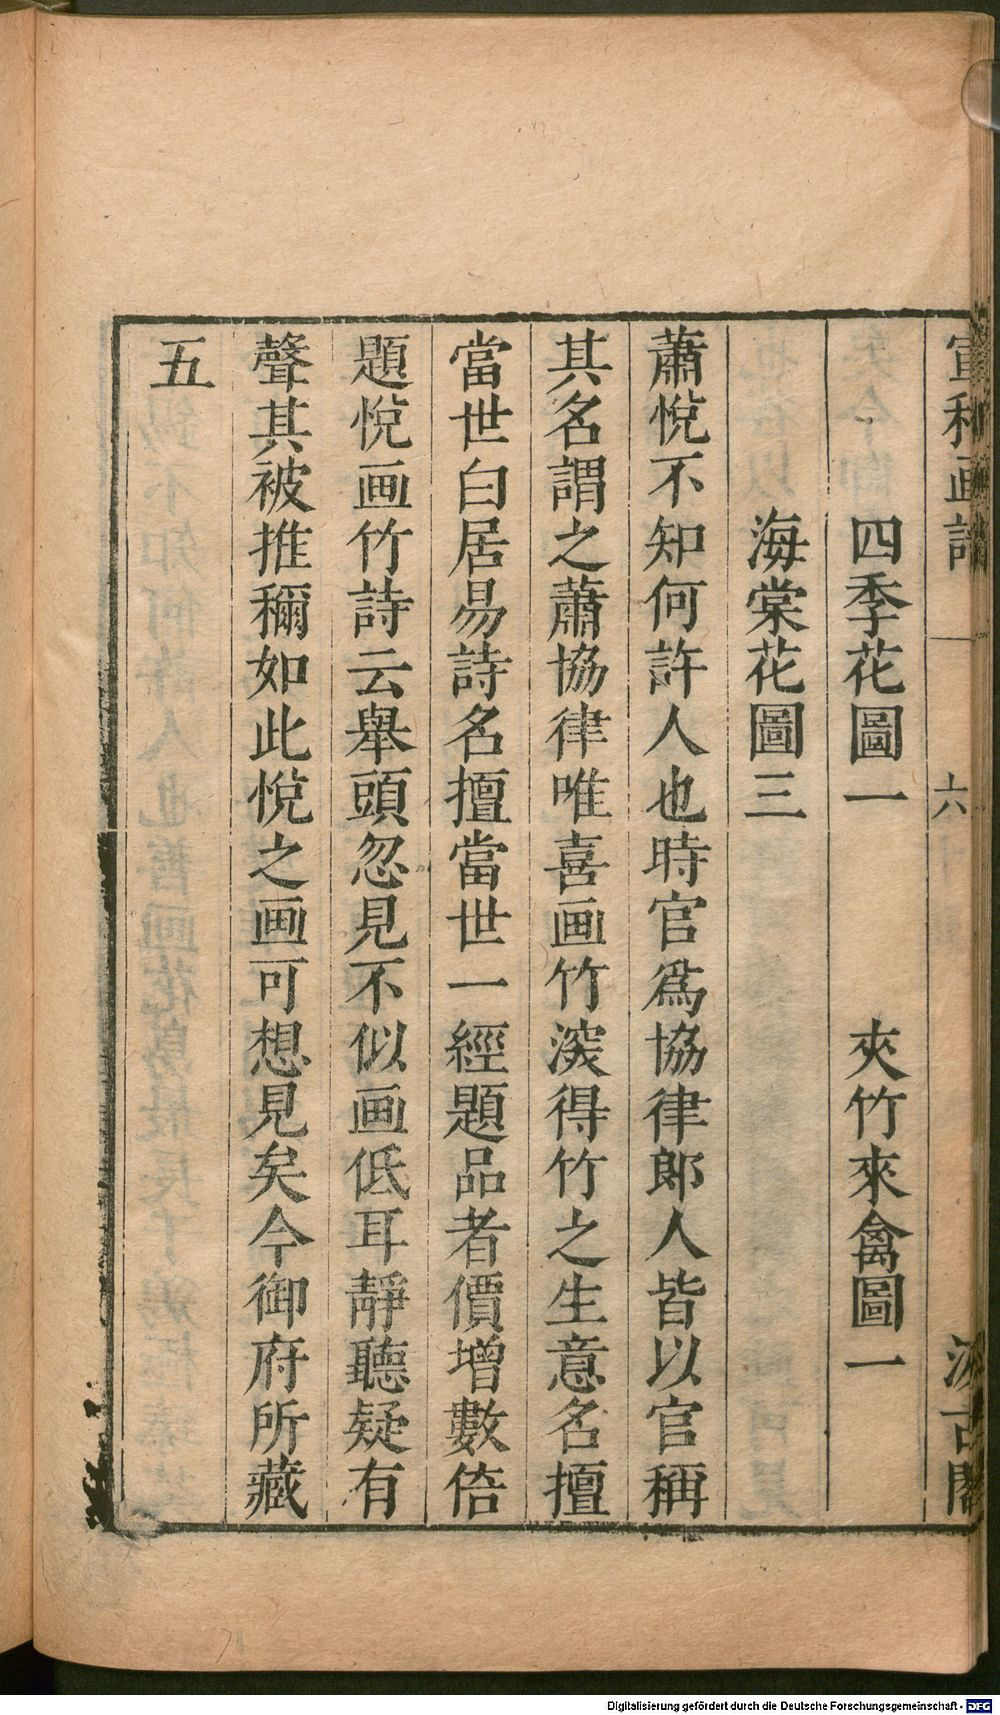 宣和画譜 六 汲古閣
四季花圖一 夾竹來禽圖一
海棠花圖三
蕭悅不知何許人也時官爲協律郎人皆以官稱
其名謂之蕭協律唯喜画竹深得竹之生意名擅
當世白居易詩名擅當世一經題品者價增數倍
題悅画竹詩云舉頭忽見不似画低耳靜聽疑有
聲其被推稱如此悅之画可想見矣今御府所藏
五
Digitalisierung gefördert durch die Deutsche Forschungsgemeinschaft - DFG